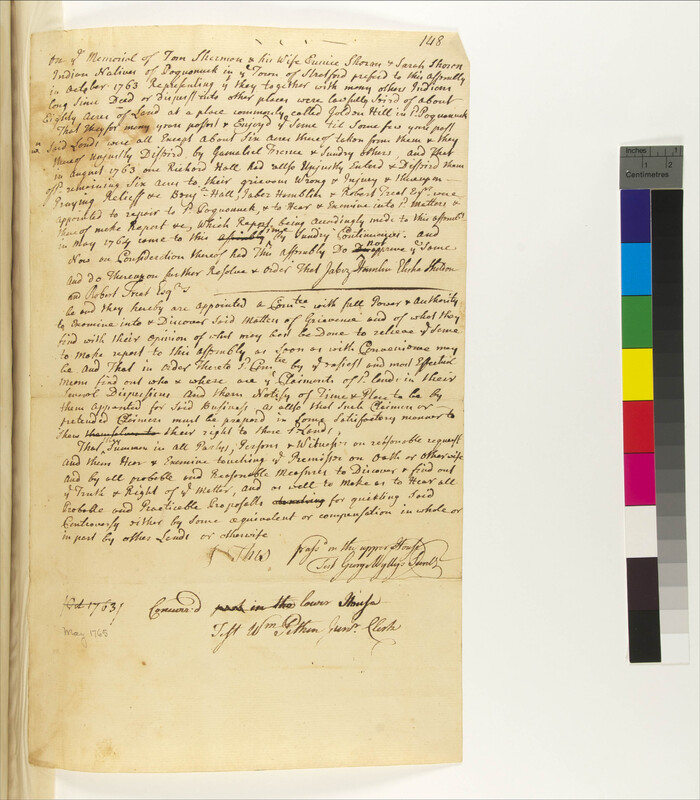 148
On ye Memorial of Tom Sherman & his Wife Eunice Shoran & Sarah Shoran
Indian Natives of Poquonuck in ye Town of Stratford preferd to this Assembly
in October 1763 Representing yt they together with many others Indians
long Since Dead or Dispersd into other places were lawfully Seizd of about
Eighty Acres of Land at a place commonly called Golden Hill in sd Poquonnuck
That they for many years possest & Enjoyd ye Same til Some few years past
wn Said Lands were all Except about Six Acres thereof taken from them & they
thereof Unjustly Dissizd by Gamaliel French & Sundry others and That
in August 1763 one Richard Hall had allso Unjustly Enterd & Dissizd them
of sd remaining Six Acres to their grievous Wrong & Injury & thereupon
Praying Relieff &c Benjn Hall, Jabez Hamblin & Robert Treat Esqrs were
appointed to repair to sd Poquonnuck, & to Hear & Examine into sd Matters &
thereof make Report &c, which Report being accordingly made to this assembly
in May 1764 came to this assembly time by Sundry Continuances and
Now on Consideration thereof had This Assembly Do not approve ye Same
And do Thereupon further Resolve & Order That Jabez Hamlin Elisha Sheldon
and Robert Treat Esqrs
be and they hereby are appointed a Comtee with full Power & Authority
to Examine into & Discover Said Matters of Grievance and of what they
find with their Opinion of what may best be done to relieve ye Same
to make report to this assembly as soon as with Convenience may
be And That in Order Thereto sd Comtee by ye easiest and most Effectual
Means find out who & where are ye Claimants of sd lands in their
Several Dispersions And them Notify of Time & Place to be by
them appointed for Said Business as allso that Such Claimers or
pretended Claimers must be prepared in some Satisfactory manner to
Shew themselves to their right to those sd Lands,
That Summon in all Partys, Persons & Witnesses on reasonable request
And them Hear & Examine touching ye Premisses on Oath or otherwise
And by all probable and Reasonable Measures to Discover & find out
ye Truth & Right of ye Matter, and as well to make as to Hear all
Probable and Practicable Proposalls touching for quieting Said
Controversy either by Some equivalent or compensation in whole or
in part by other Lands or otherwise
Past in the upper House
Test George Wyllys Secret
1763
May 1765
Concurrd past in the lower House
Test Wm Pitkin Junr. Clerk
Inches
1
2
Centimetres